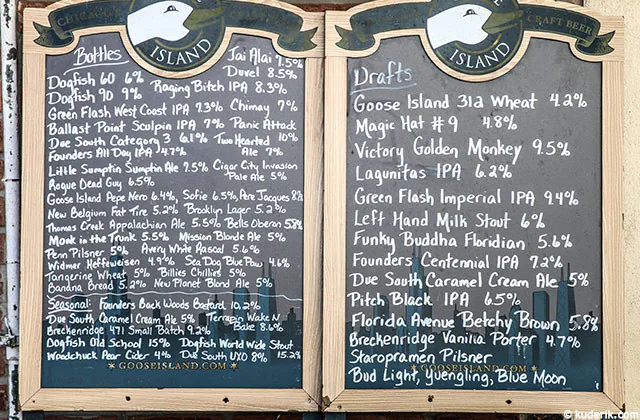 CHICAGO
ISLAND
Bottles
Jai Alai 7.5%
Dogfish 60 6%
Duvel 8.5%
Dogfish 90 9%
Raging Bitch IPA 8.3%
Green Flash West Coast IPA 7.3% Chimay 7%
Ballast Point Sculpin IPA 7% Panic Attack
Due South Category 3 6.1% Two Hearted 10%
Founders All Day IPA 4.7% Ale 7%
Little Sumptin Sumptin Ale 7.5% Cigar City Invasion
Rogue Dead Guy 6.5% Pale Ale 5%
Goose Island Pepe Nero 6.4%, Sofie 6.5%, Pere Jacques 8%
New Belgium Fat Tire 5.2% Brooklyn Lager 5.2%
Thomas Creek Appalachian Ale 5.5% Bells Oberon 5.8%
Monk in the Trunk 5.5% Mission Blonde Ale 5%
Penn Pilsner 5% Avery White Rascal 5.6%
Widmer Hefferweisen 4.9% Sea Dog Blue Paw 4.6%
Tangerine Wheat 5% Billies Chillies 5%
Banana Bread 5.2% New Planet Blond Ale 5%
Seasonal: Founders Back Woods Bastard 10.2%
Due South Caramel Cream Ale 5% Terrapin Wake N
Breckenridge 471 Small Batch 9.2% Bake 8.6%
Dogfish Old School 15% Dogfish World Wide Stout
Woodchuck Pear Cider 4% Due South UXO 8% 15.2%
GOOSEISLAND.COM
CRAFT BEER
ISLAND
Drafts
Goose Island 312 Wheat 4.2%
Magic Hat #9 4.8%
Victory Golden Monkey 9.5%
Lagunitas IPA 6.2%
Green Flash Imperial IPA 9.4%
Left Hand Milk Stout 6%
Funky Buddha Floridian 5.6%
Founders Centennial IPA 7.2%
Due South Caramel Cream Ale 5%
Pitch Black IPA 6.5%
Florida Avenue Betchy Brown 5.8%
Breckenridge Vanilla Porter 4.7%
Staropramen Pilsner
GOOSEISLAND.COM
Bud Light, Yuengling, Blue Moon
© kuderik.com